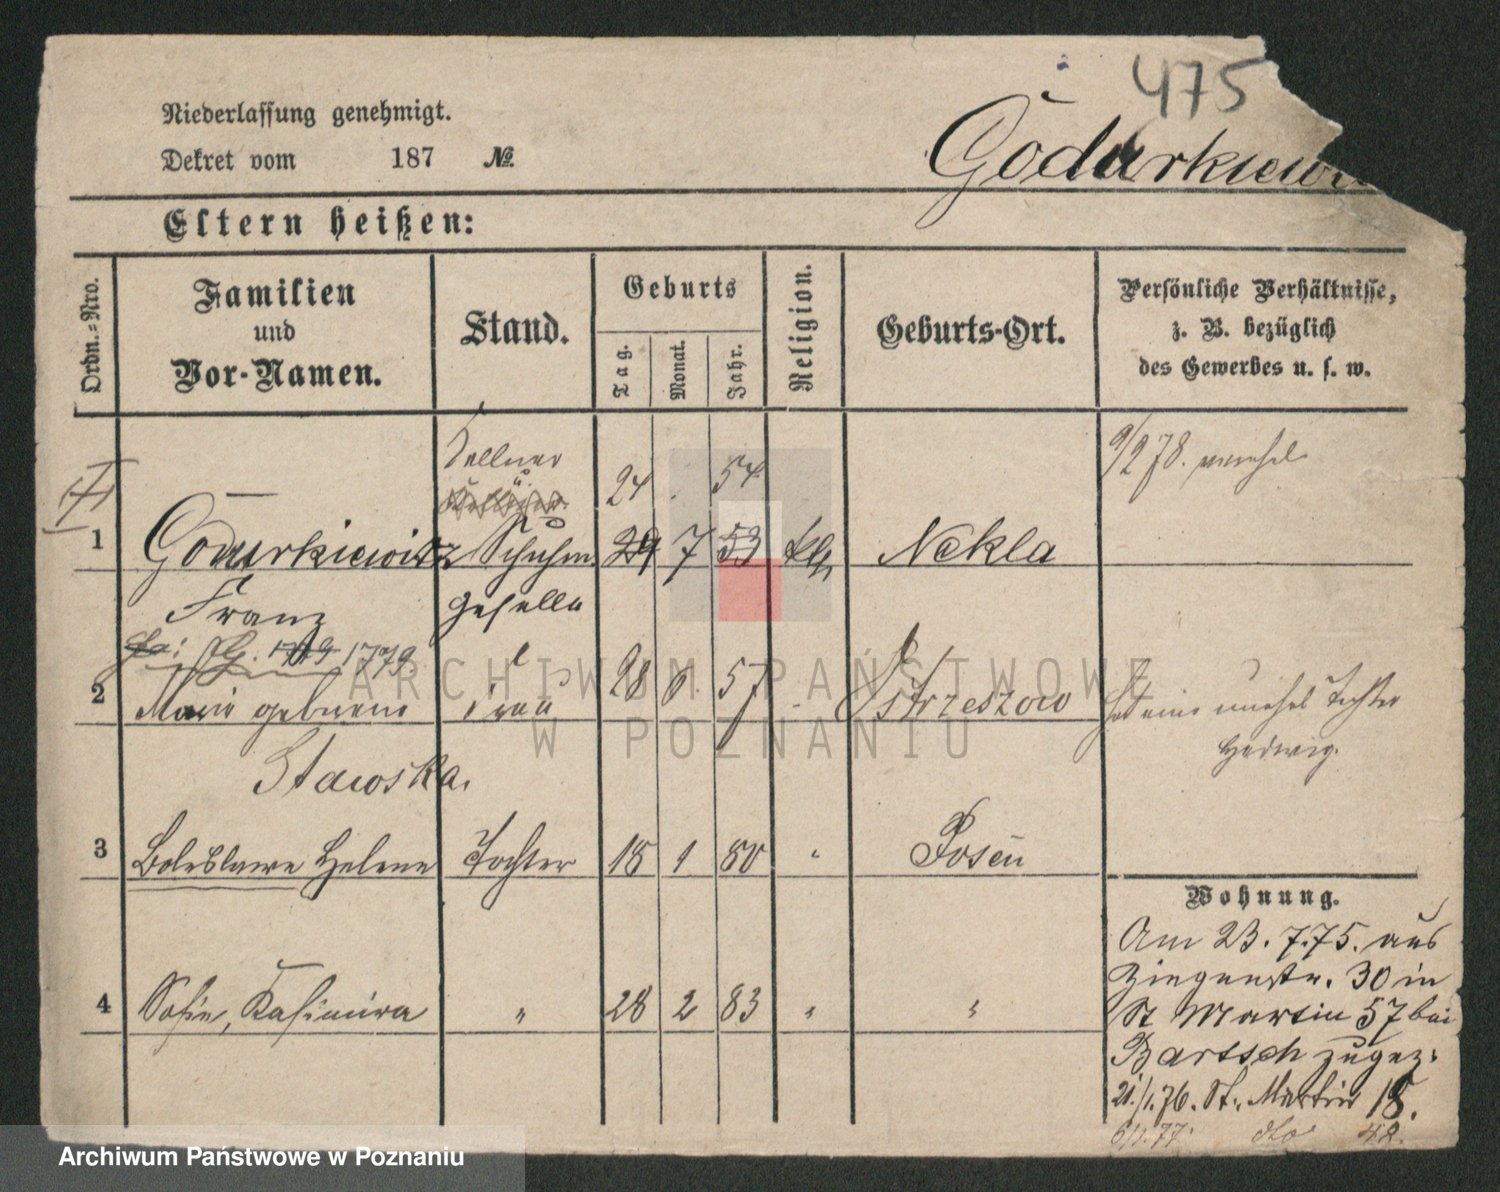 475
Niederlassung genehmigt.
Dekret vom 187 №
Godurkiewi
Eltern heißen:
Ordn.-Nro.
Familien
und
Vor-Namen.
Stand.
Geburts
Tag.
Monat.
Jahr.
Religion.
Geburts-Ort.
Persönliche Verhältnisse,
z. B. bezüglich
des Gewerbes u. s. w.
Kellner
24 54
9/2 78.
1 Godurkiewitz Schuhm 29 7 53 kth Nekla
Franz Geselle
1779.
2 Marie geborene Frau 28 6 57 Ostrzeszow hat eine unehel Tochter
Stawska. Hedwig.
3 Boleslawa Helene Tochter 18 1 80 " Posen
Wohnung.
Am 23.7.75. aus
Ziegenstr. 30 in
4 Sofie, Kasimira " 28 2 83 " "
St Martin 57 bei
Bartsch zugez.
21/1.76. St. Martin 18.
6/1.77. dto 42.
ARCHIWUM PAŃSTWOWE
W POZNANIU
Archiwum Państwowe w Poznaniu